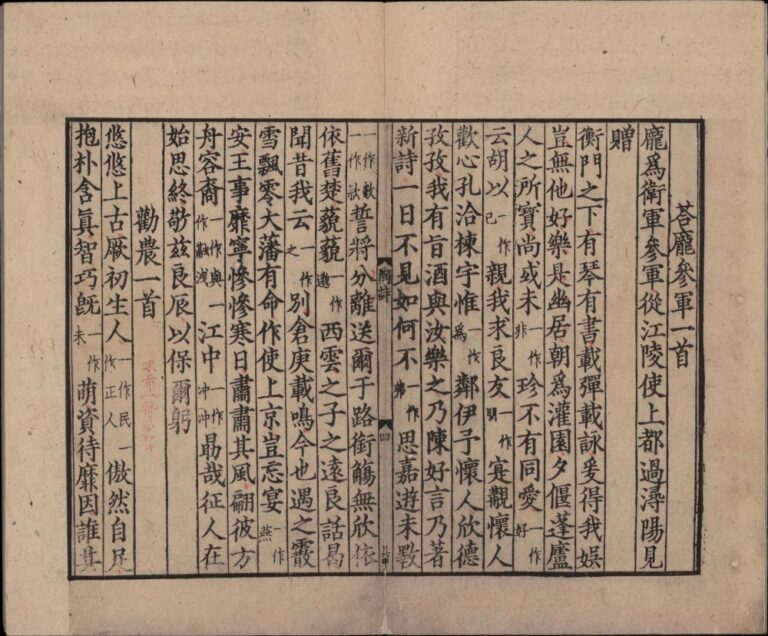 荅龐參軍一首
龐爲衛軍參軍從江陵使上都過潯陽見
贈
衡門之下有琴有書載彈載詠爰得我娛
豈無他好樂是幽居朝爲灌園夕偃蓬廬
人之所寶尚或未一作非珍不有同愛一作好
云胡以一作已親我求良友一作朋寔覯懷人
歡心孔洽棟宇惟一作爲鄰伊予懷人欣德
孜孜我有旨酒與汝樂之乃陳好言乃著
新詩一日不見如何不一作弗思嘉遊未斁
陶詩
四
一作一作猒誓將分離送爾于路銜觴無欣依
依舊楚藐藐一作邈西雲之子之遠良話曷
聞昔我云一作之別倉庚載鳴今也遇之霰
雪飄零大藩有命作使上京豈忘宴一作燕
安王事靡寧慘慘寒日肅肅其風翩彼方
舟容裔一作與一作融洩江中一作沖沖勗哉征人在
始思終敬茲良辰以保爾躬
勸農一首
悠悠上古厥初生人一作民一作正人傲然自足
抱朴含眞智巧旣一作未萌資待靡因誰其